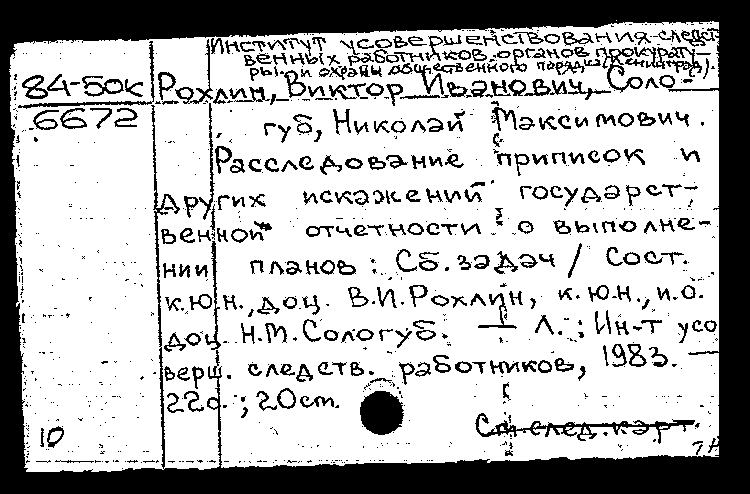 Институт усовершенствования следст-
венных работников органов прокурату-
ры и охраны общественного порядка (Ленинград).
84-50к Рохлин, Виктор Иванович, Соло-
6672 губ, Николай Максимович.
Расследование приписок и
других искажений государст-
венной отчетности о выполне-
нии планов: Сб. задач / Сост.
к.ю.н., доц. В.И. Рохлин, к.ю.н., и.о.
доц. Н.М. Сологуб. — Л.: Ин-т усо
верш. следств. работников, 1983. —
22с.; 20см.
10 См. след. карт.